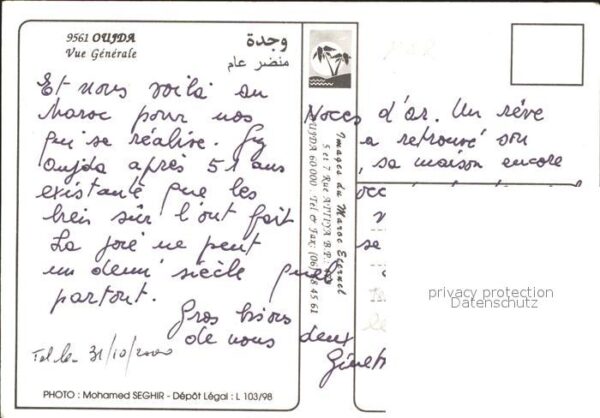 9561 OUJDA
Vue Générale
وجدة
منضر عام
Et nous voilà au
Maroc pour nos Noces d'or. Un rêve
qui se réalise. Guy a retrouvé son
Oujda après 51 ans, sa maison encore
existante que les occ
liens sûr l'ont fait
La joie ne peut se
un demi siècle
partout.
Gros bisous
de nous deux
31/10/2000
Images du Maroc Eternel
5 et 7 Rue ATTIYA B.P.
OUJDA 60 000 Tel & Fax: (06) 68 45 61
privacy protection
Datenschutz
PHOTO : Mohamed SEGHIR - Dépôt Légal : L 103/98